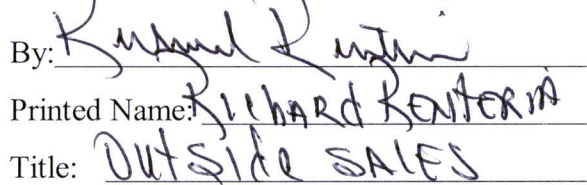 By: Richard Renteria
Printed Name: Richard RENTERIA
Title: Outside SALES